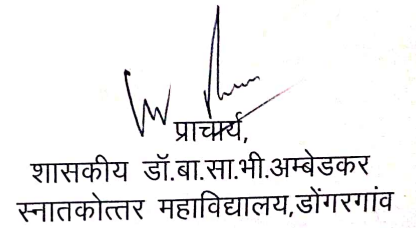 प्राचार्य,
शासकीय डॉ.बा.सा.भी.अम्बेडकर
स्नातकोत्तर महाविद्यालय,डोंगरगांव